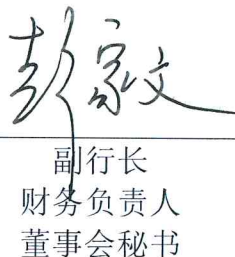 彭家文
副行长
财务负责人
董事会秘书